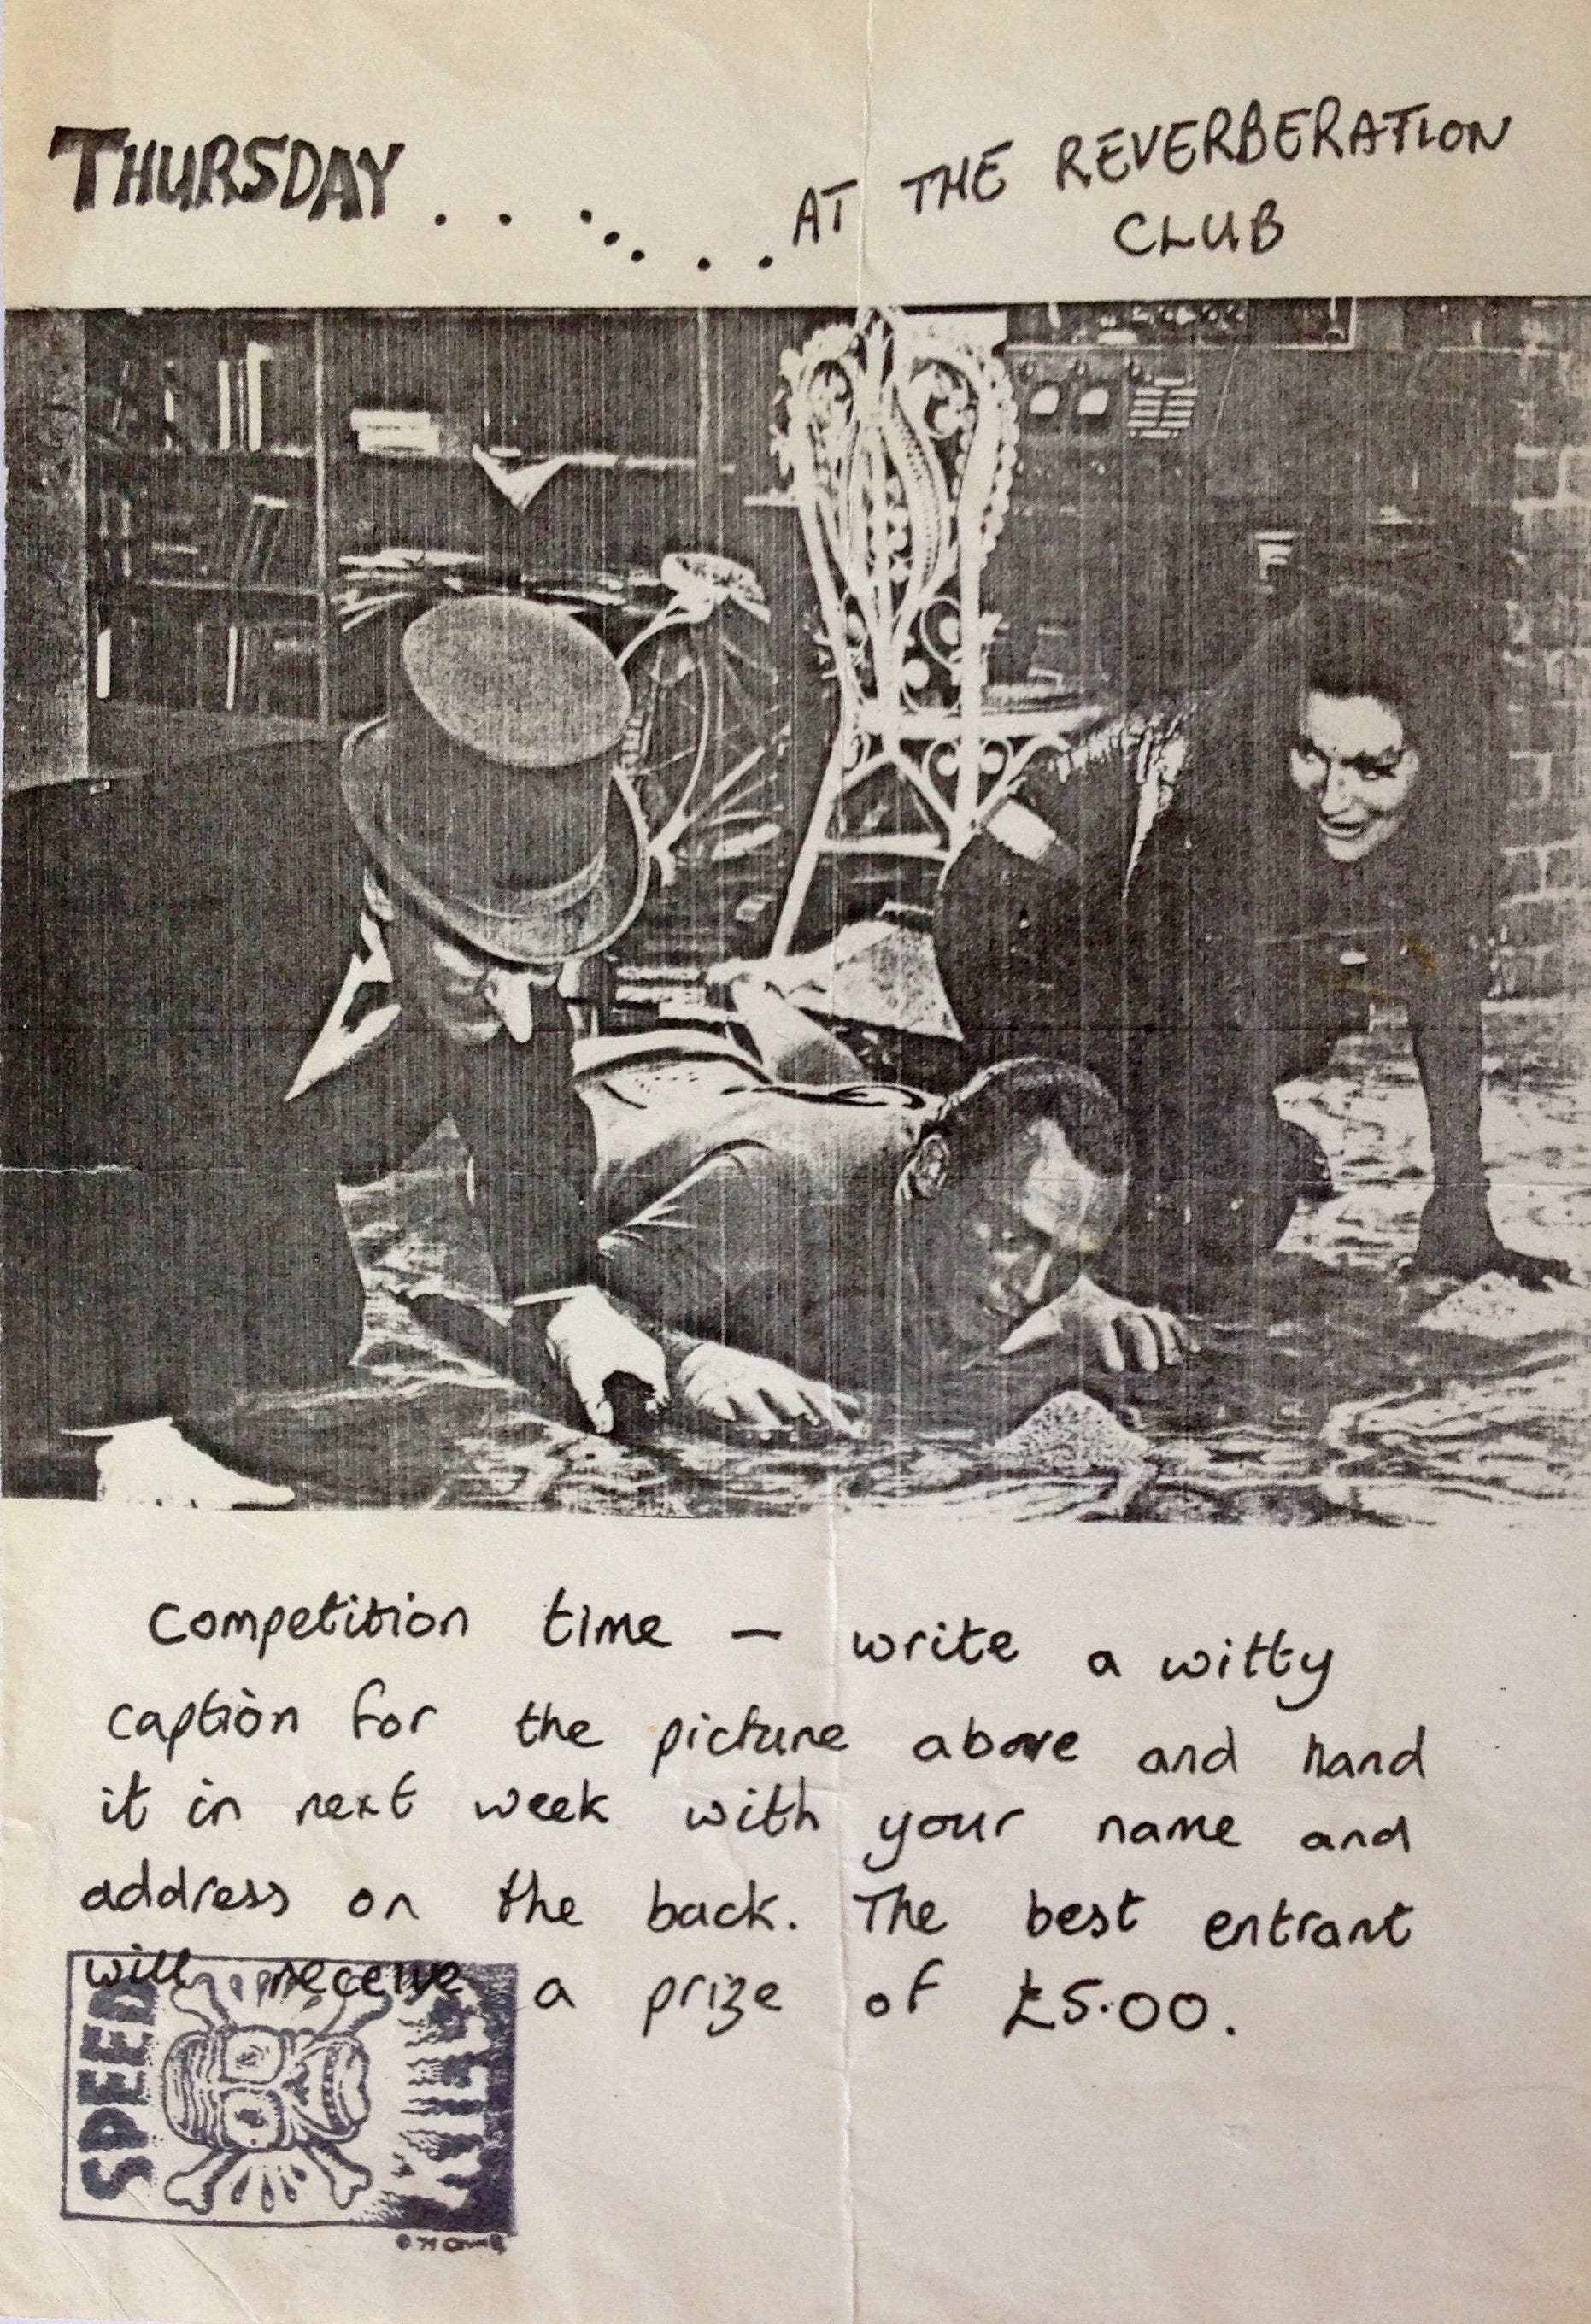 THURSDAY . . . . . . . AT THE REVERBERATION
CLUB
Competition time – write a witty
caption for the picture above and hand
it in next week with your name and
address on the back. The best entrant
will receive a prize of £5.00.
SPEED
KILLS